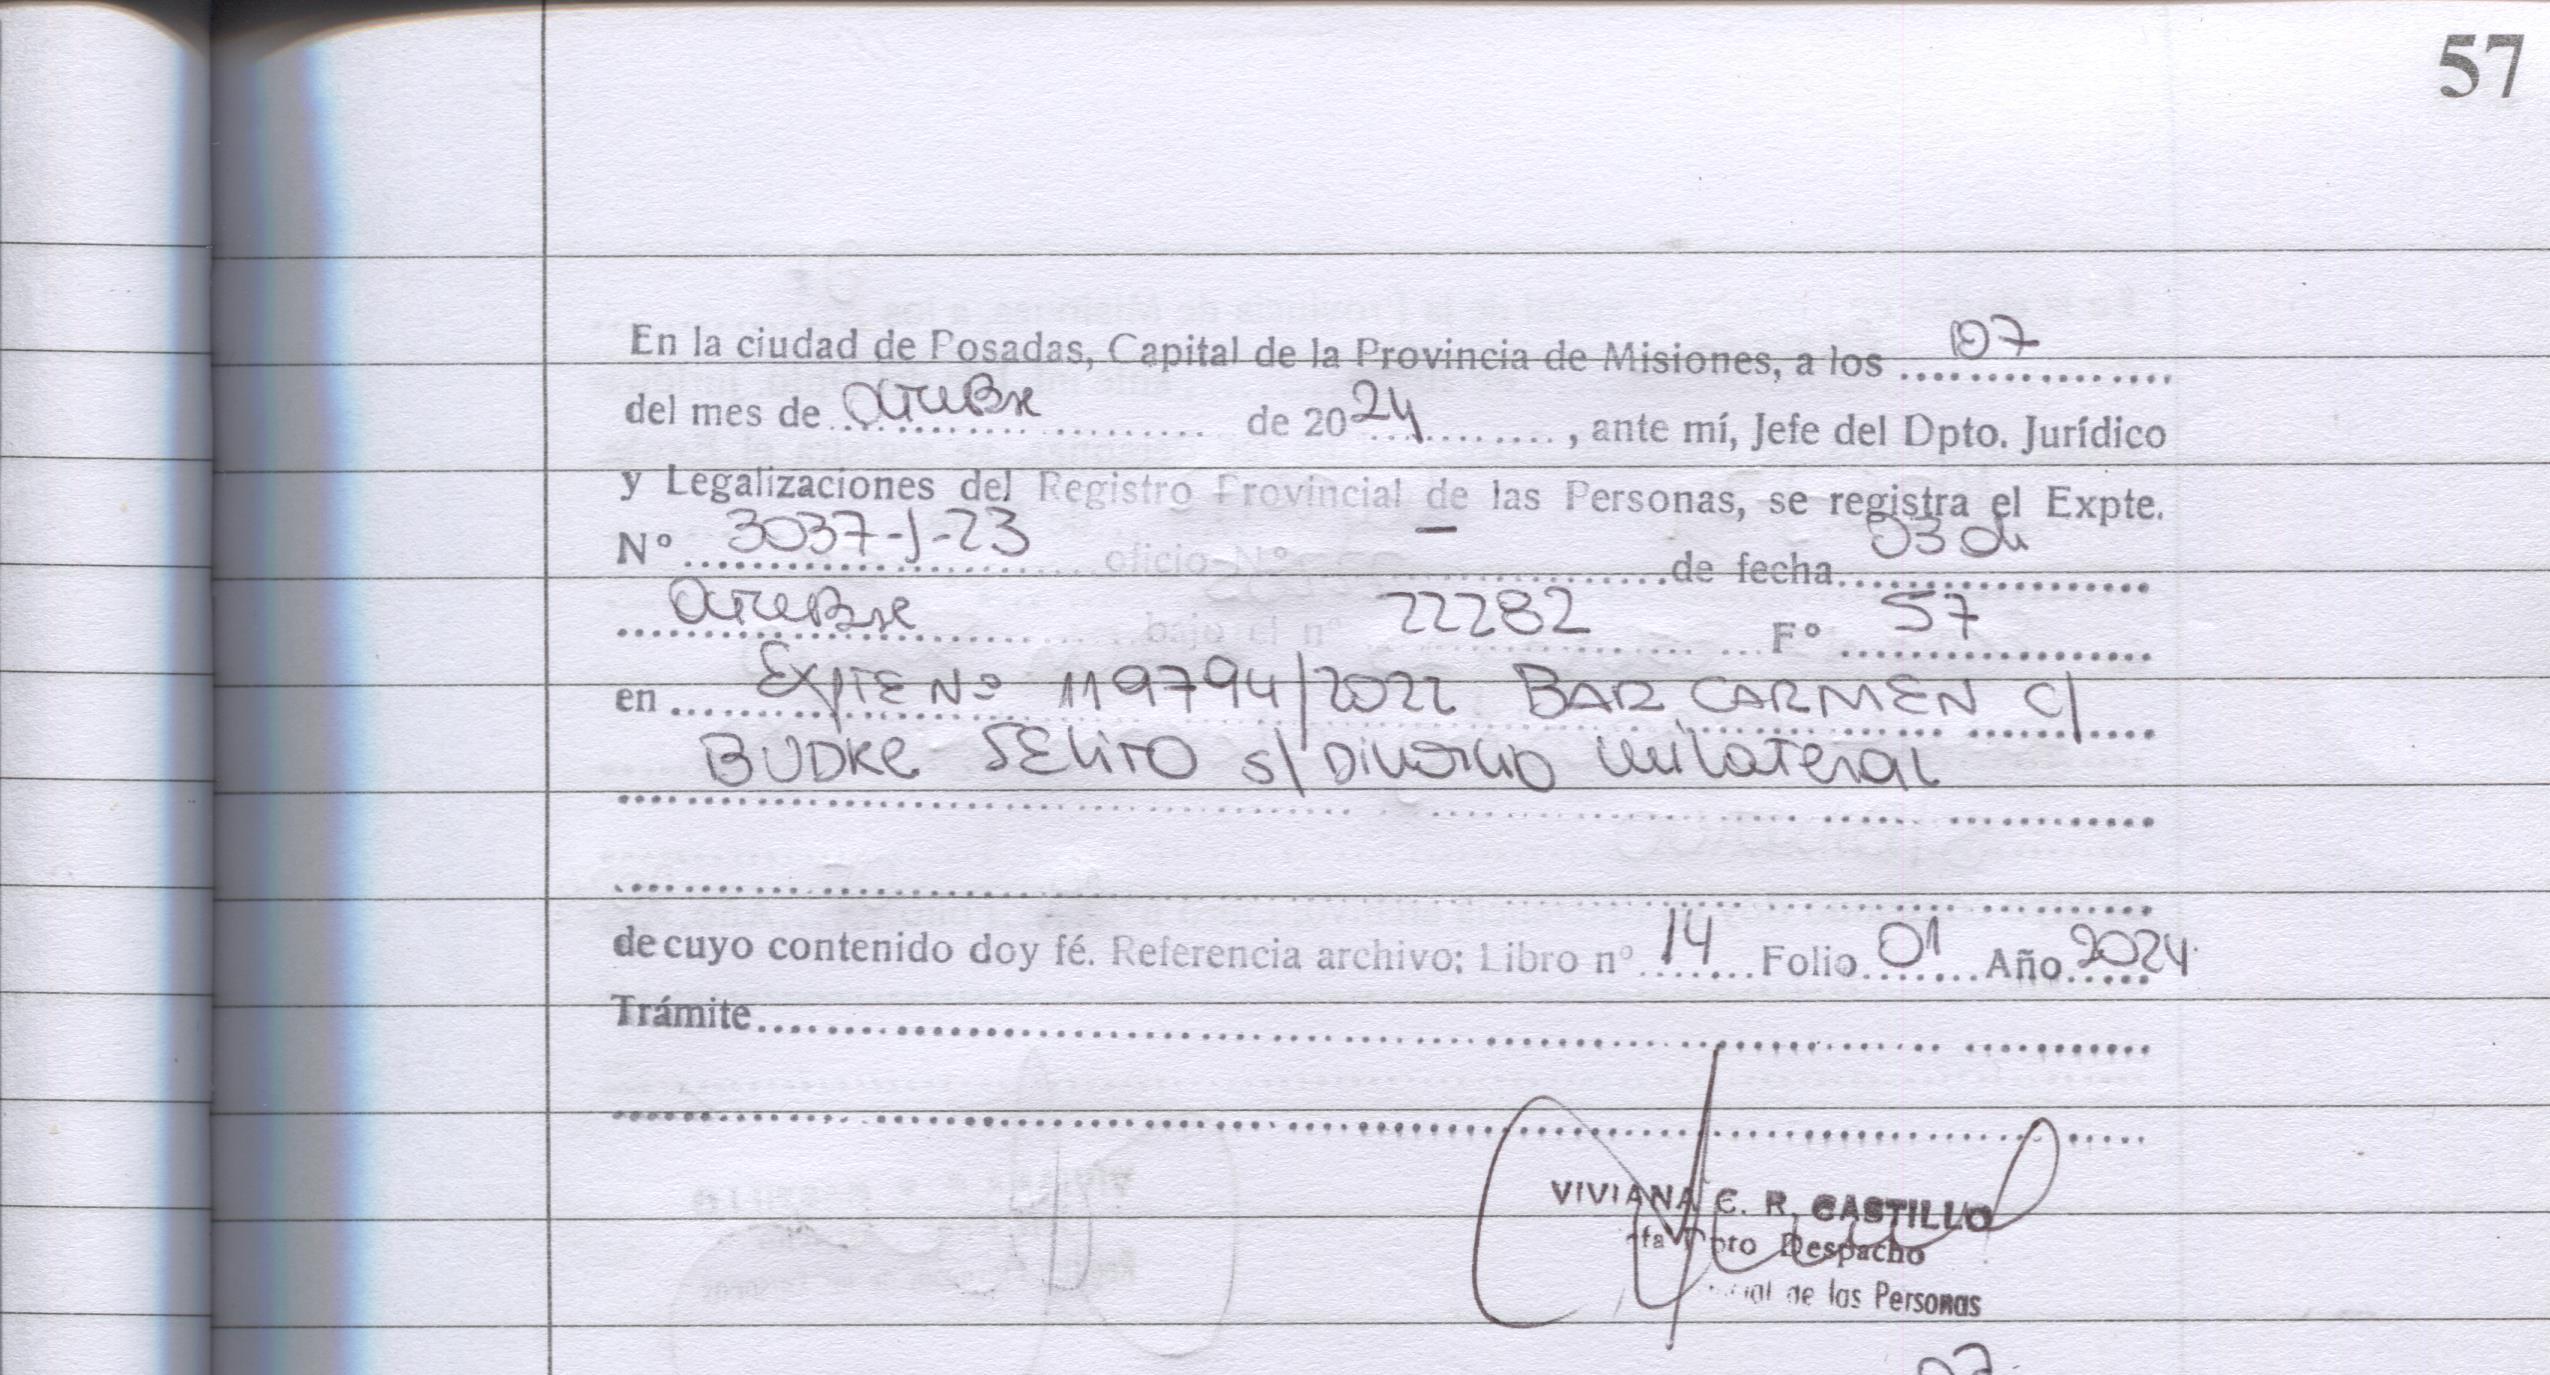 57
En la ciudad de Posadas, Capital de la Provincia de Misiones, a los 07
del mes de octubre de 2024, ante mí, Jefe del Dpto. Jurídico
y Legalizaciones del Registro Provincial de las Personas, se registra el Expte.
Nº 3037-J-23 oficio Nº - de fecha 03 de
octubre bajo el nº 22282 Fº 57
en Expte Nº 119794/2022 BAR CARMEN C/
BUDKE SELITO S/ Divorcio unilateral
de cuyo contenido doy fé. Referencia archivo: Libro nº 14 Folio 01 Año 2024
Trámite
VIVIANA C. R. CASTILLO
Despacho
de las Personas